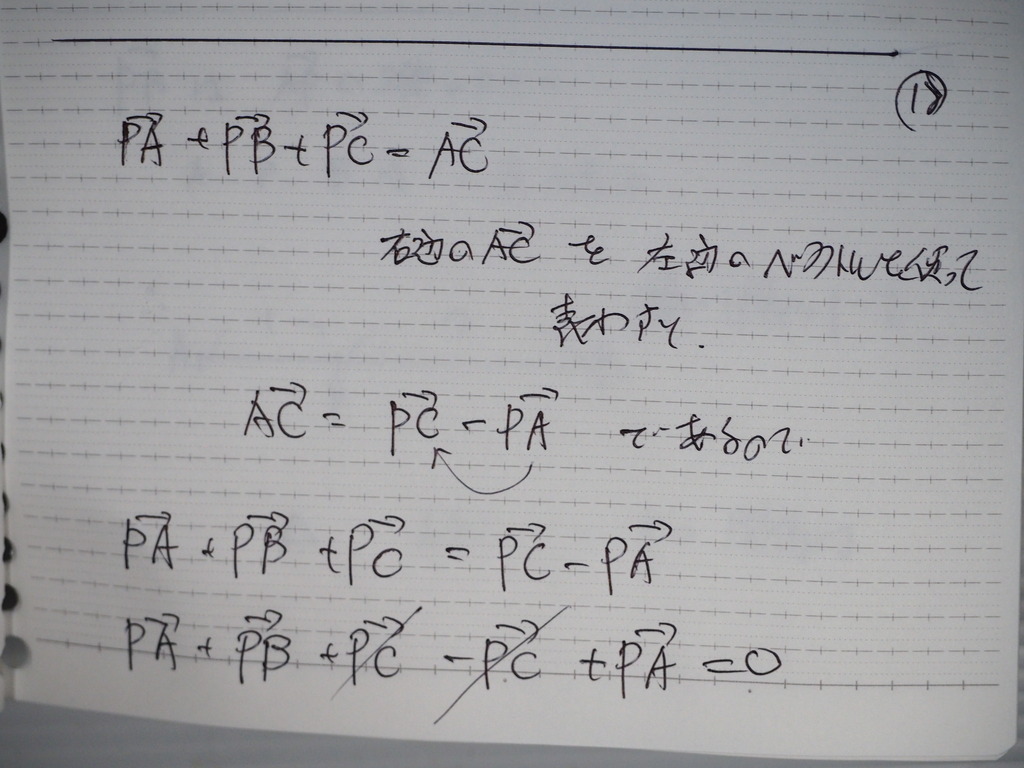 ⑱
PA→ + PB→ + PC→ = AC→
右辺の AC→ を 左辺の ベクトルを使って
表わすと.
AC→ = PC→ - PA→ であるので.
PA→ + PB→ + PC→ = PC→ - PA→
PA→ + PB→ + PC→ - PC→ + PA→ = 0